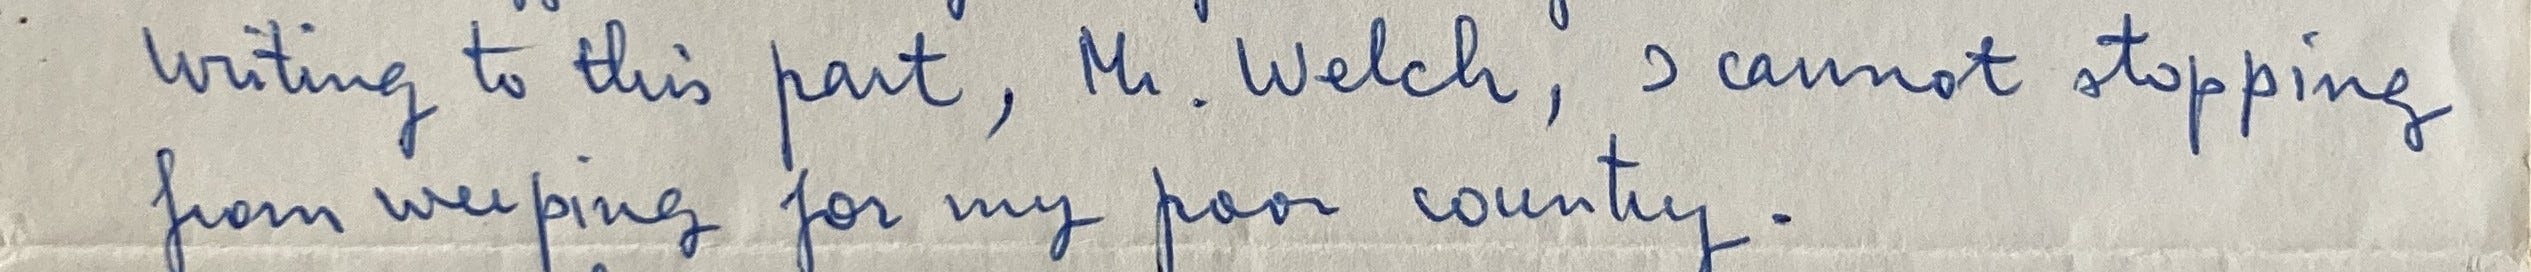 Writing to this part, Mr. Welch, I cannot stopping
from weeping for my poor country.